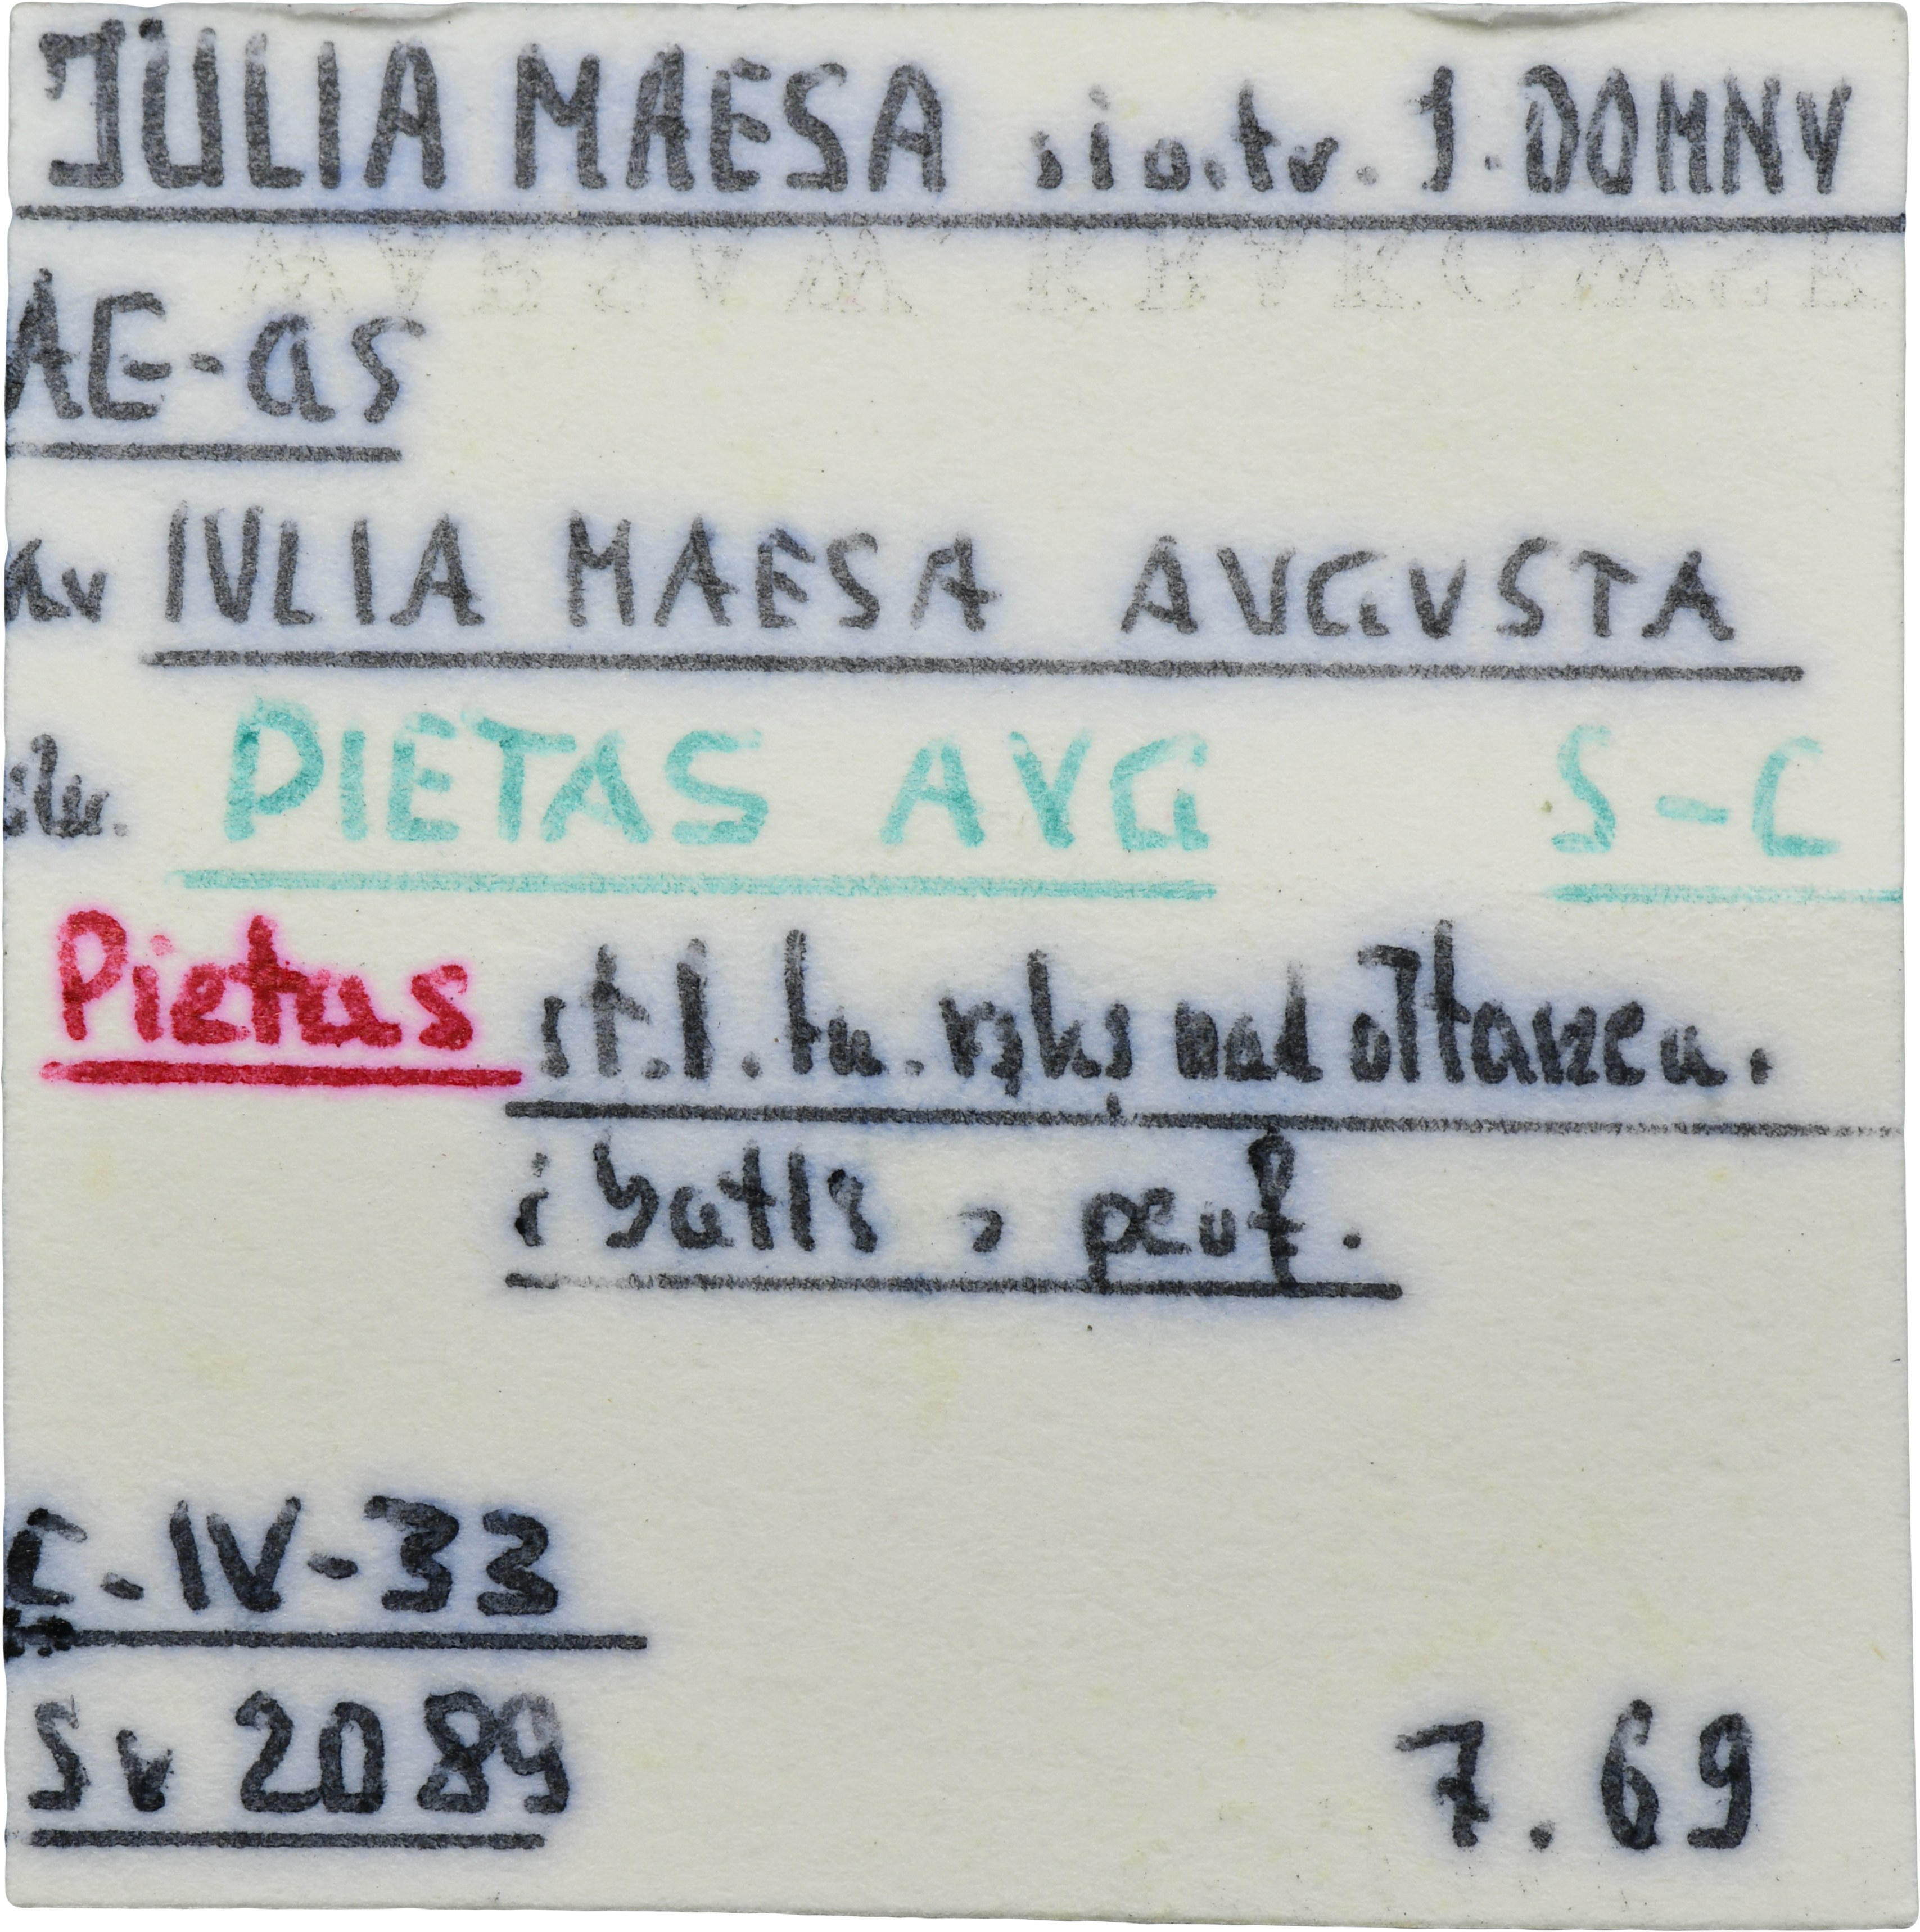 JULIA MAESA siostr. J. DOMNY
AE-as
av IULIA MAESA AVGVSTA
PIETAS AVG S-C
Pietas st. l. tu. ręką nad ołtarzeu.
i , perf.
C-IV-33
Sv 2089
7.69